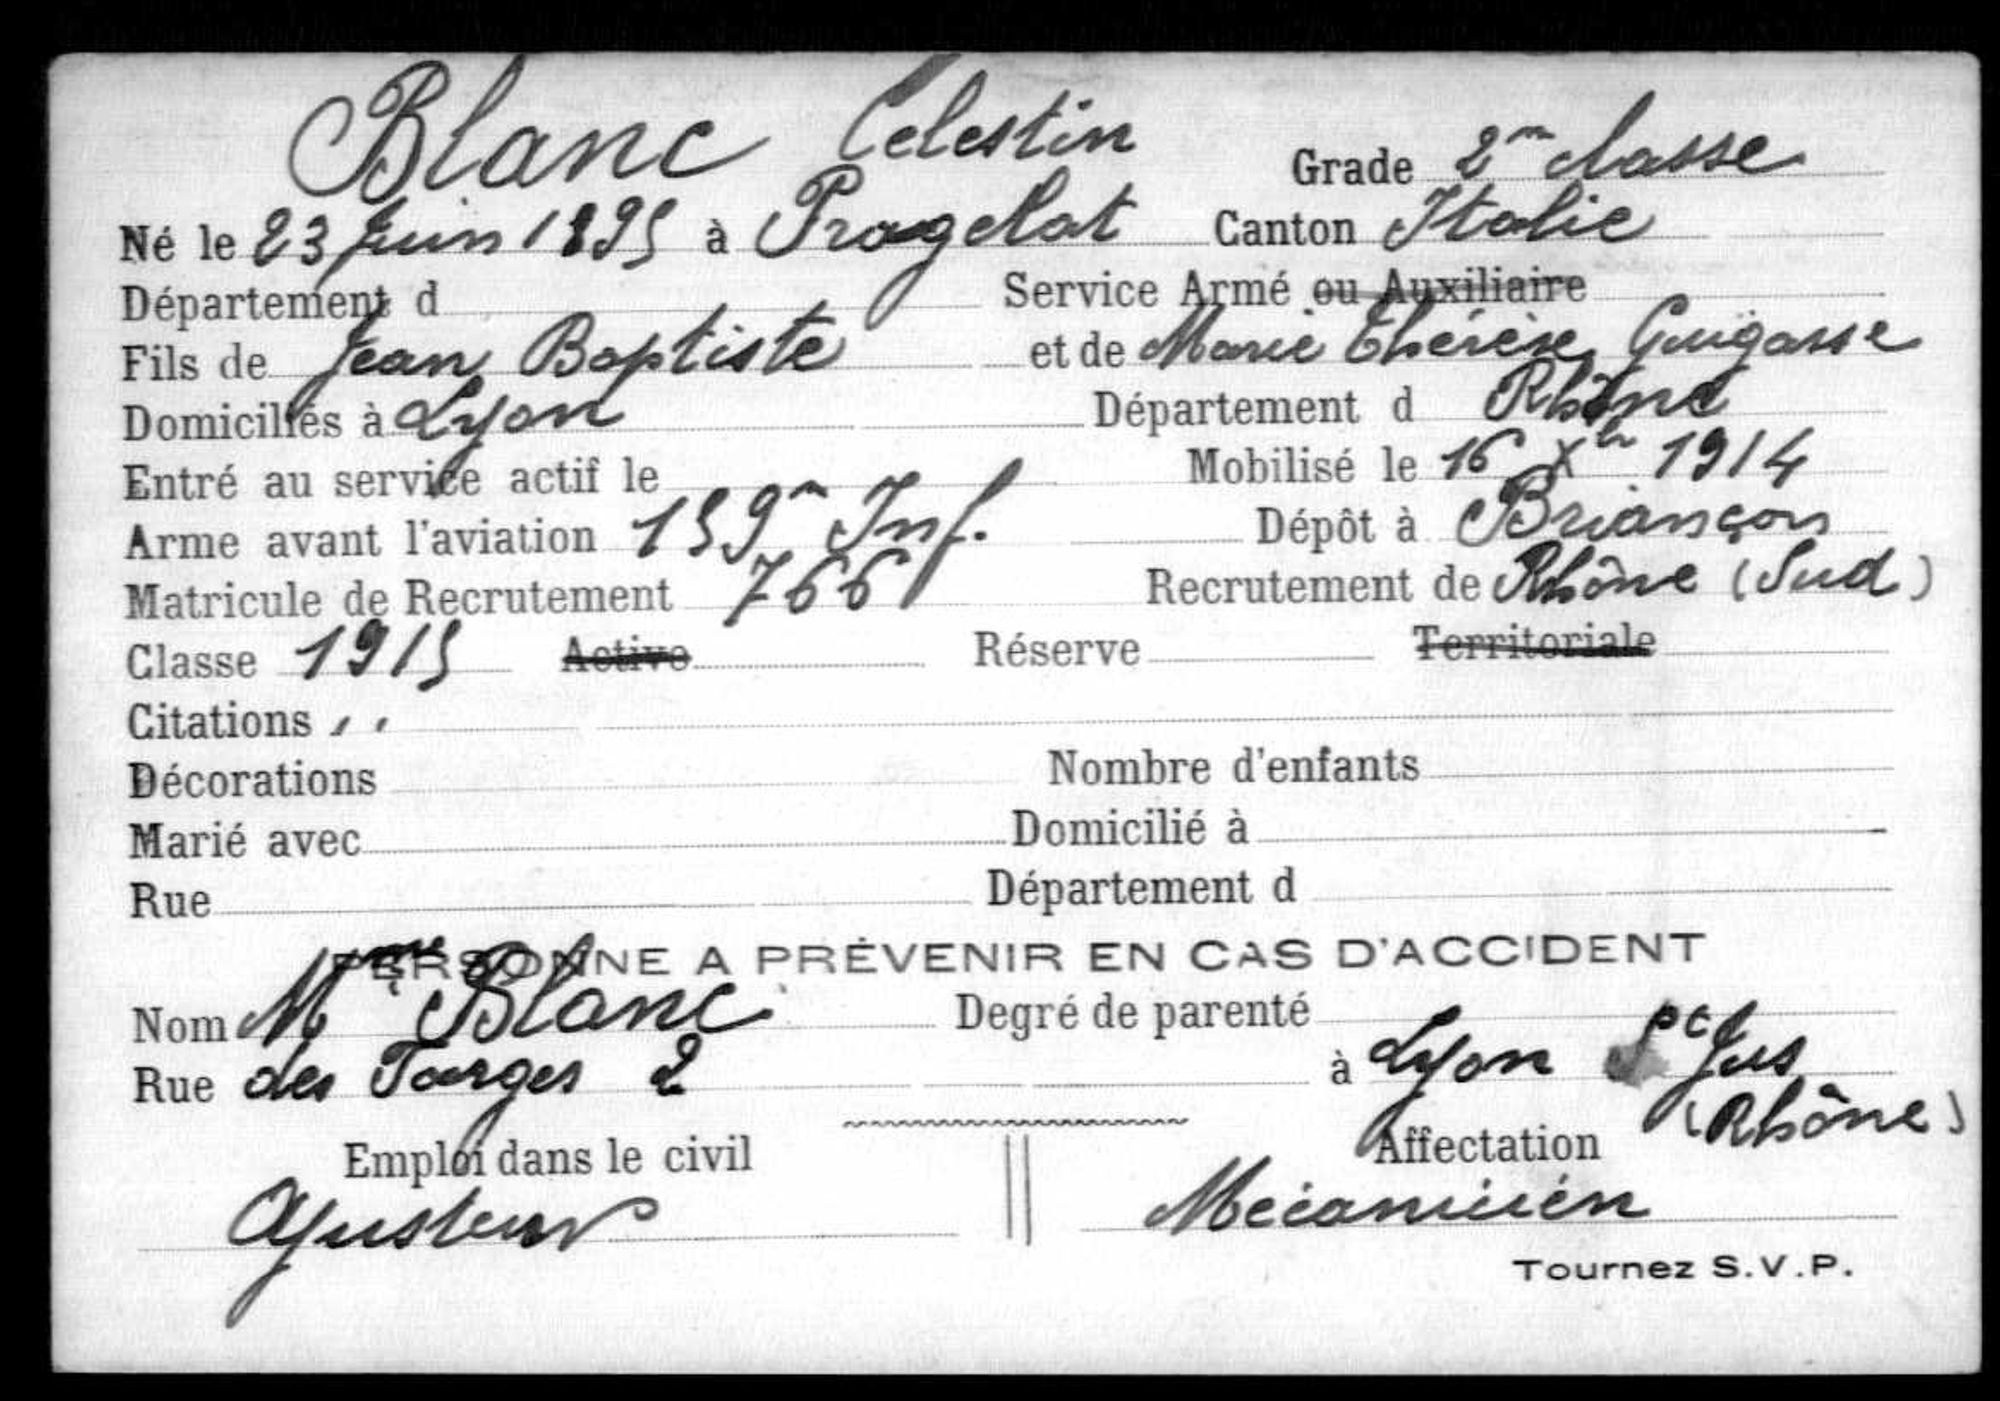 Blanc Celestin Grade 2me classe
Né le 23 Juin 1895 à Pragelat Canton Italie
Département d Service Armé ou Auxiliaire
Fils de Jean Baptiste et de Marie Thérèse Guigasse
Domiciliés à Lyon Département d Rhône
Entré au service actif le Mobilisé le 16 Xbre 1914
Arme avant l'aviation 159me Inf. Dépôt à Briançon
Matricule de Recrutement 766 Recrutement de Rhône (Sud)
Classe 1915 Active Réserve Territoriale
Citations
Décorations Nombre d'enfants
Marié avec Domicilié à
Rue Département d
PERSONNE A PRÉVENIR EN CAS D'ACCIDENT
Nom Mme Blanc Degré de parenté
Rue des Farges 2 à Lyon St Jus
(Rhône)
Emploi dans le civil Affectation
Ajusteur Mécanicien
Tournez S.V.P.